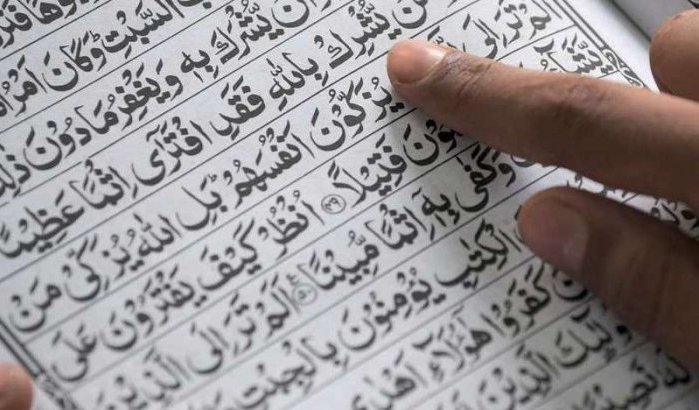 السَّبْتِ وَكَانَ اَمْرُ
اَنْ يُّشْرَكَ بِهٖ وَيَغْفِرُ مَا دُوْنَ ذٰلِ
مَنْ يُّشْرِكْ بِاللّٰهِ فَقَدِ افْتَرٰٓى اِثْمًا عَظِيْمًا
اَلَمْ تَرَ اِلَى يُزَكُّوْنَ اَنْفُسَهُمْ بَلِ اللّٰهُ يُزَكِّيْ مَنْ
فَتِيْلًا ۴۹ اُنْظُرْ كَيْفَ يَفْتَرُوْنَ عَلَى
وَكَفٰى بِهٖٓ اِثْمًا مُّبِيْنًا ۵۰ اَلَمْ تَرَ اِلَى الَّذِيْنَ
الْكِتٰبِ يُؤْمِنُوْنَ بِالْجِبْتِ
كَفَرُوْا هٰٓؤُلَآءِ اَهْدٰى
اُولٰٓئِكَ الَّذِيْنَ
لَهٗ نَصِيْرًا